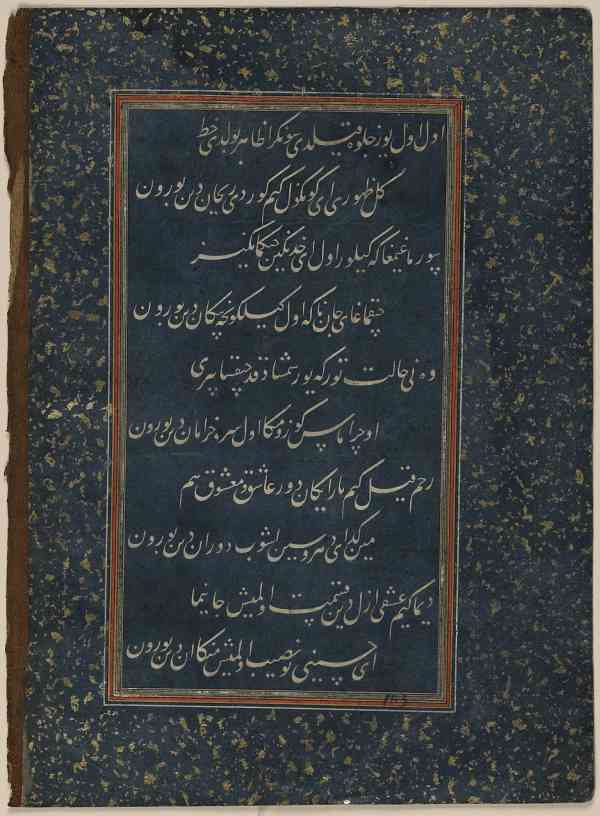 اول اول یوز جلوه قیلدی سونکرا ظاهر بولدی خط
کل ظهوری ای کونکول کیم کوردی ریحان دین بورون
کیلور اول ای خدنکین چیکمانکیز
چیقماغای جان تا که اول کیلکونچه پیکان دین بورون
وه نی حالت تور که یوز شمشاد قد چیقسا پری
اوچراماس کوزومکا اول سرو خرامان دین بورون
رحم قیل کیم بار ایکان دور عاشق و معشوق هم
مین کدای دهر و سین آشوب دوران دین بورون
دیما کیم عشقی ازل دین قسمت اولمیش جانیما
ای حسینی بو نصیب اولمیش منکا آن دین بورون